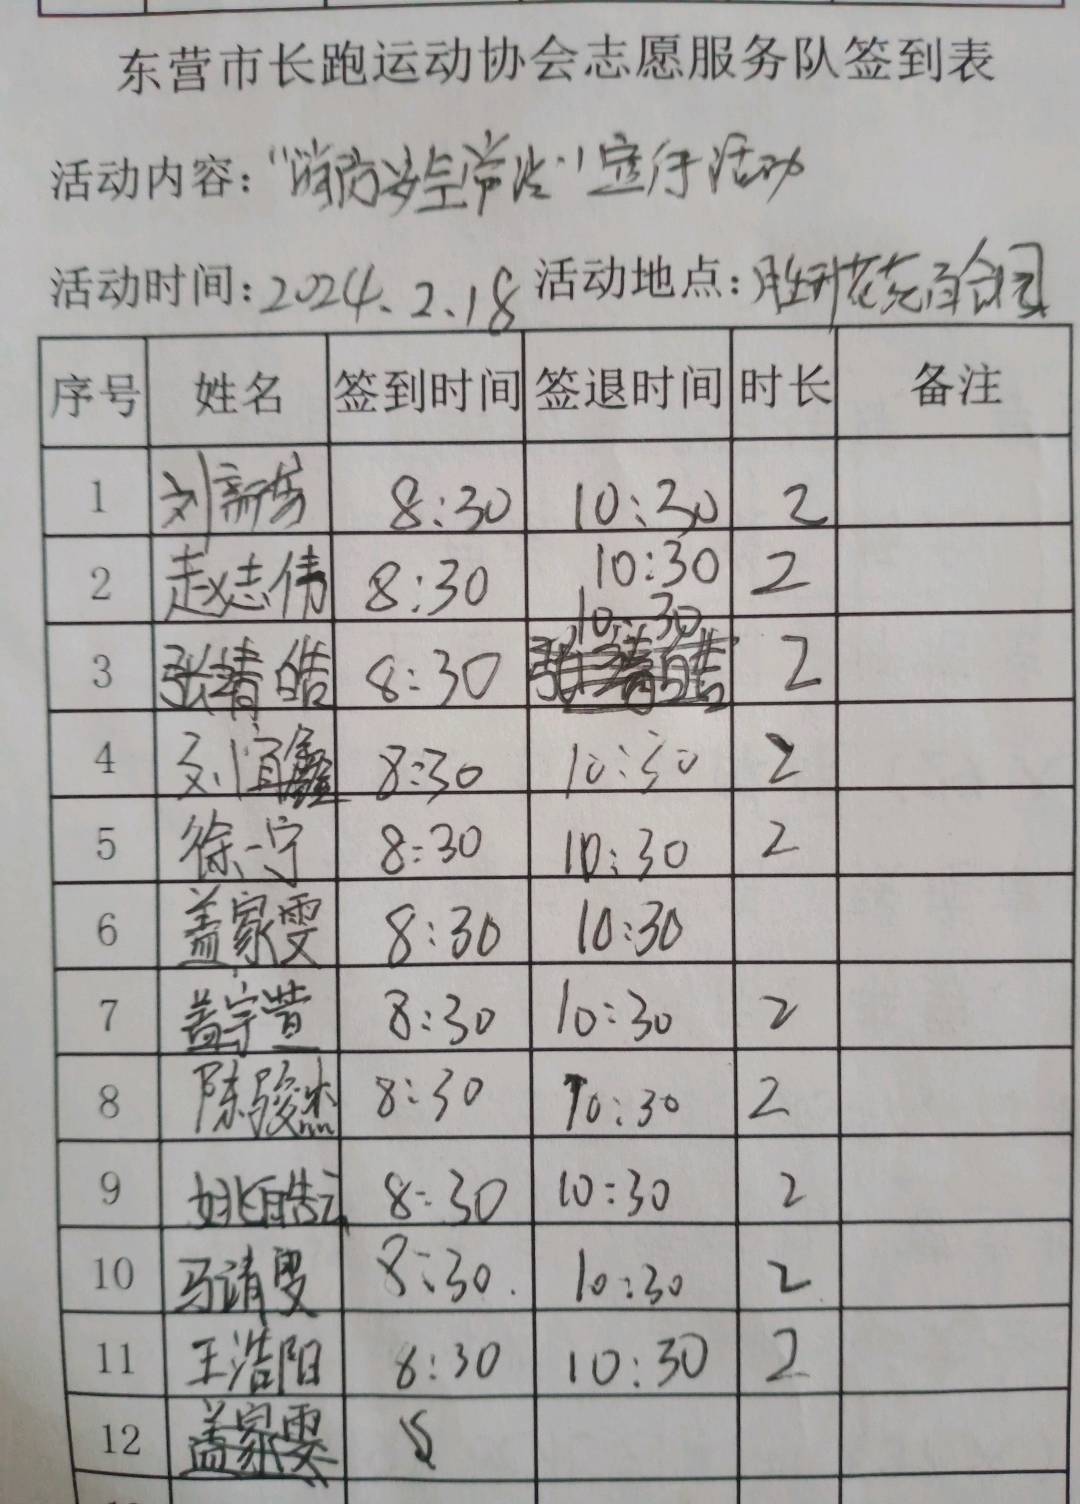 东营市长跑运动协会志愿服务队签到表
活动内容："消防安全常识"宣传活动
活动时间：2024.2.18 活动地点：胜利花苑百合园
序号 姓名 签到时间 签退时间 时长 备注
1 刘新芳 8:30 10:30 2
2 赵志伟 8:30 10:30 2
3 张清皓 8:30 10:30 2
4 刘宜鑫 8:30 10:30 2
5 徐一宁 8:30 10:30 2
6 盖家雯 8:30 10:30
7 盖宇萱 8:30 10:30 2
8 陈骏杰 8:30 10:30 2
9 姚皓云 8:30 10:30 2
10 马靖雯 8:30 10:30 2
11 王浩阳 8:30 10:30 2
12 盖家雯